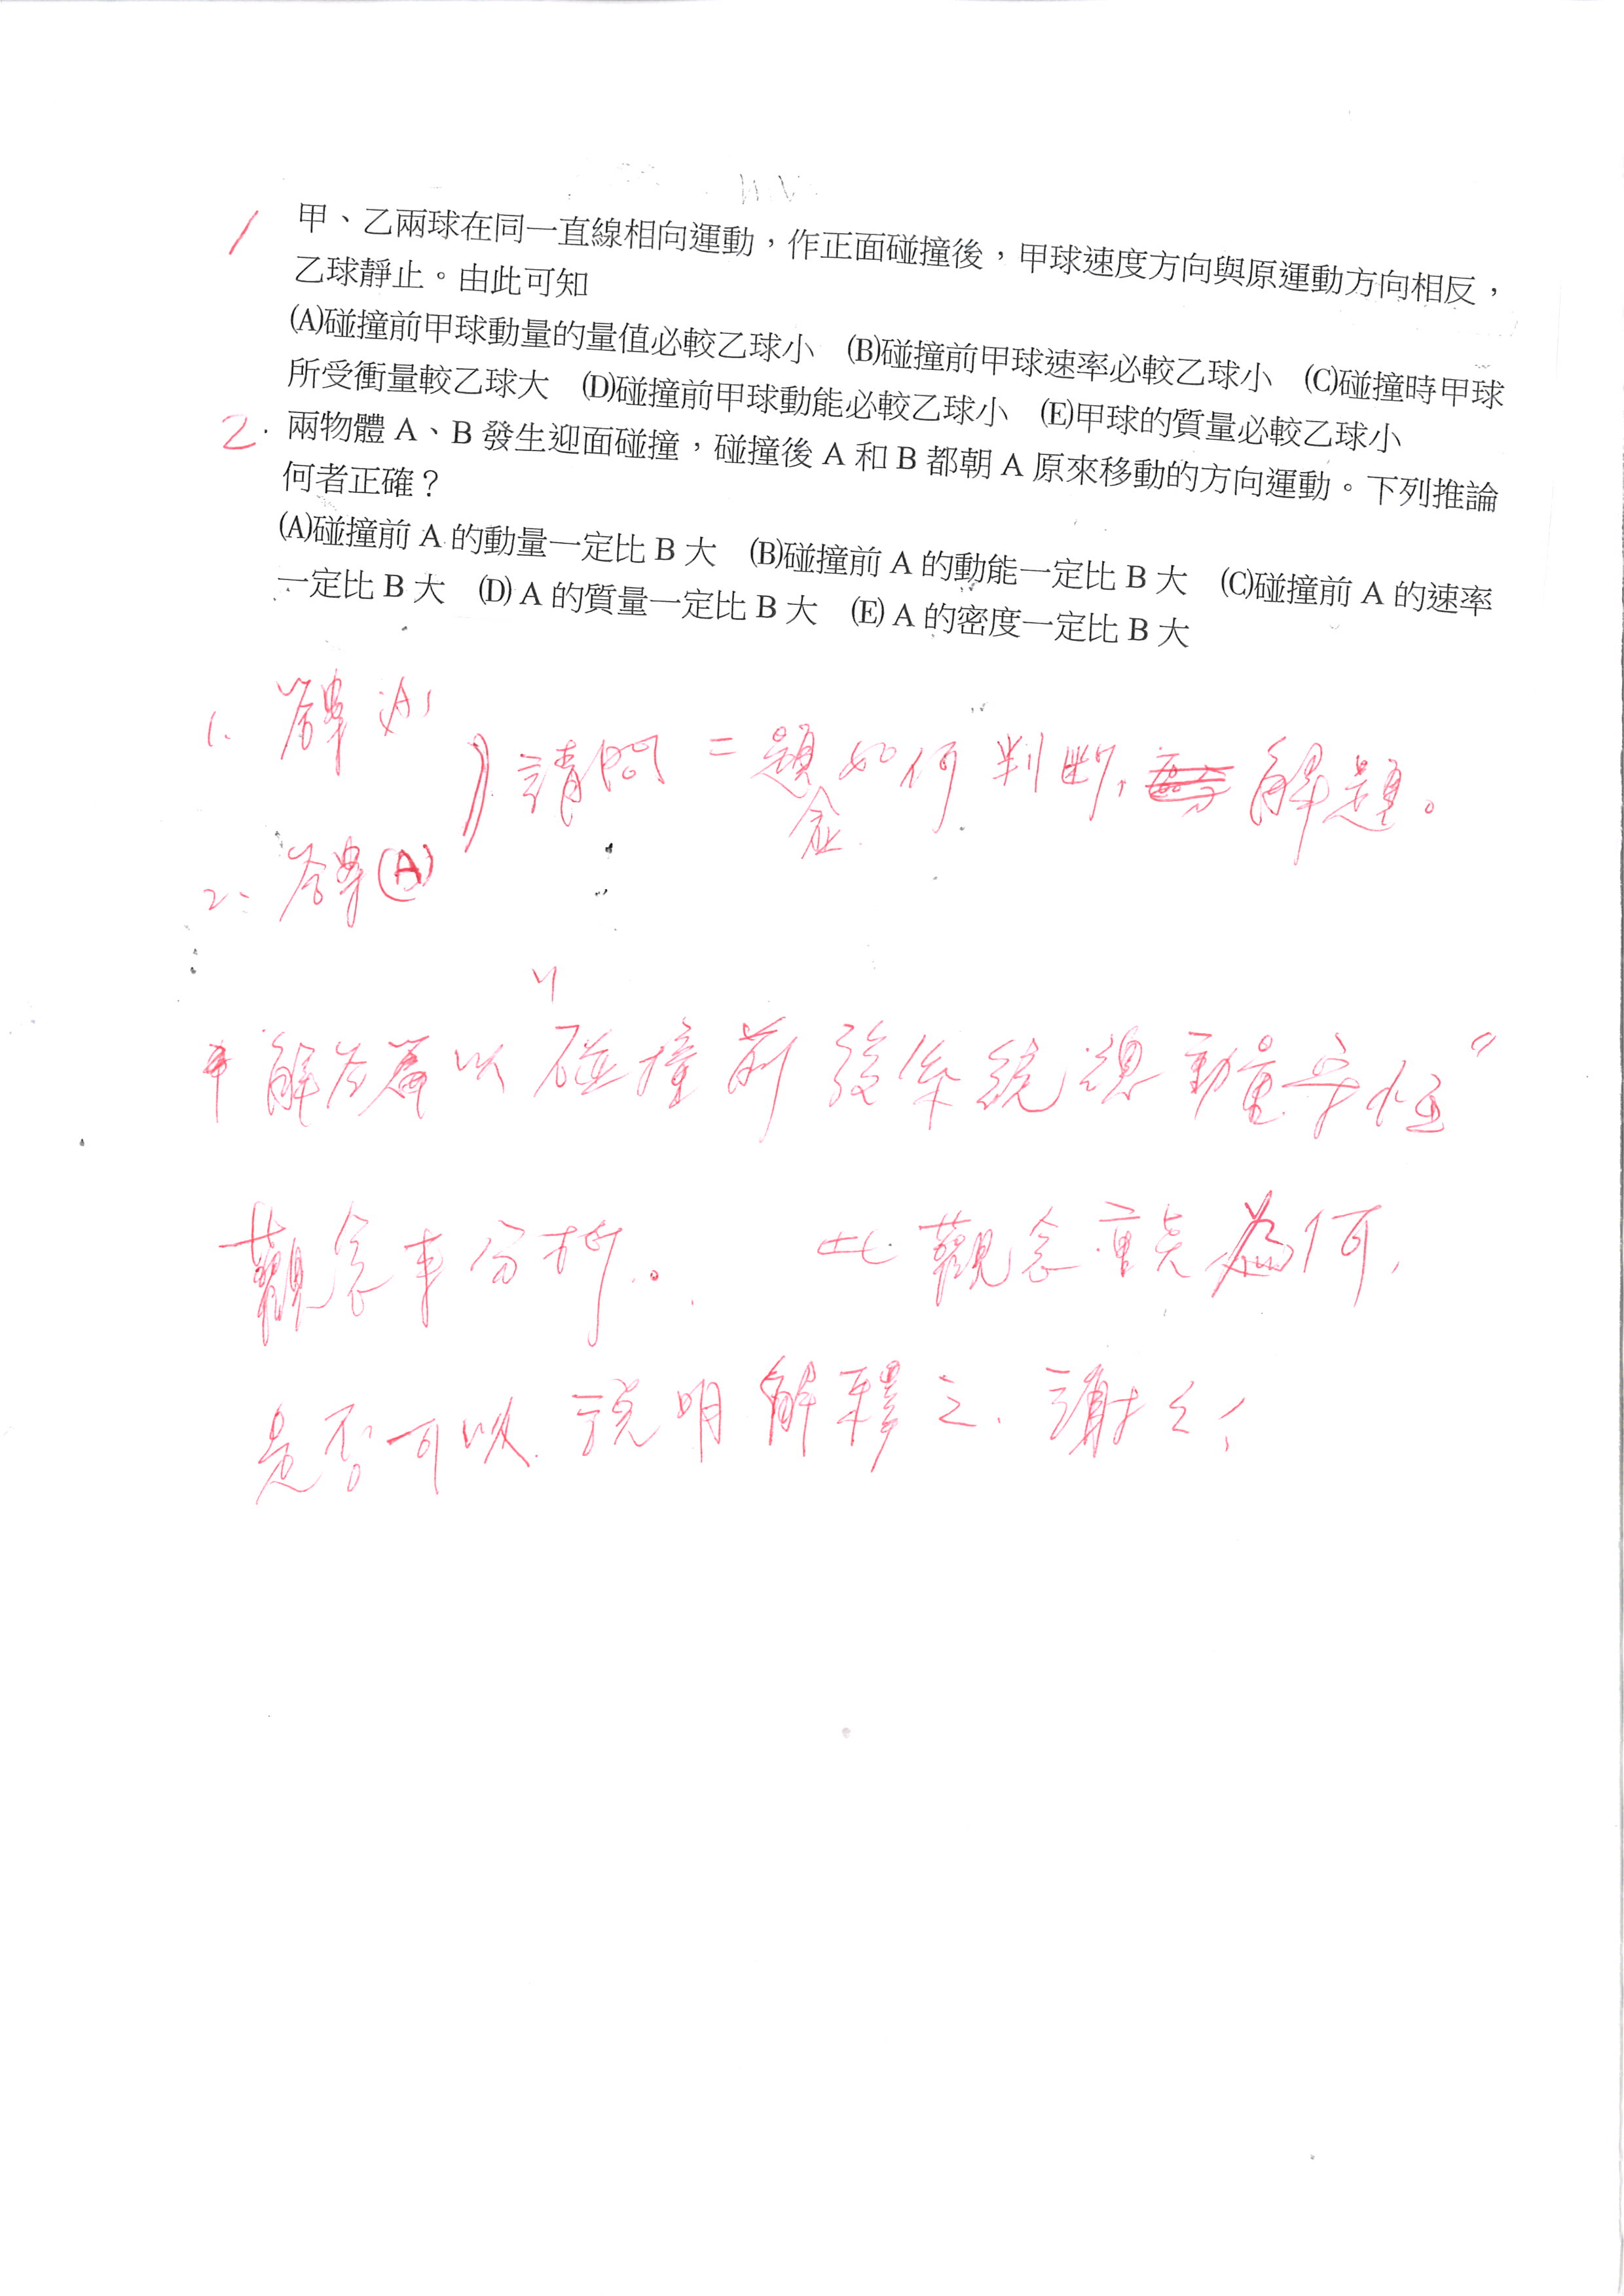 1 甲、乙兩球在同一直線相向運動,作正面碰撞後,甲球速度方向與原運動方向相反,
乙球靜止。由此可知
(A)碰撞前甲球動量的量值必較乙球小 (B)碰撞前甲球速率必較乙球小 (C)碰撞時甲球
所受衝量較乙球大 (D)碰撞前甲球動能必較乙球小 (E)甲球的質量必較乙球小
2. 兩物體 A、B 發生迎面碰撞,碰撞後 A 和 B 都朝 A 原來移動的方向運動。下列推論
何者正確?
(A)碰撞前 A 的動量一定比 B 大 (B)碰撞前 A 的動能一定比 B 大 (C)碰撞前 A 的速率
一定比 B 大 (D) A 的質量一定比 B 大 (E) A 的密度一定比 B 大
1. 答案 (A)
請問二題如何判斷, 解題。
2. 答案(A)
解答篇以"碰撞前後係統總動量守恆"
觀念來分析。 此觀念重點為何,
是否可以說明解釋之. 謝謝!